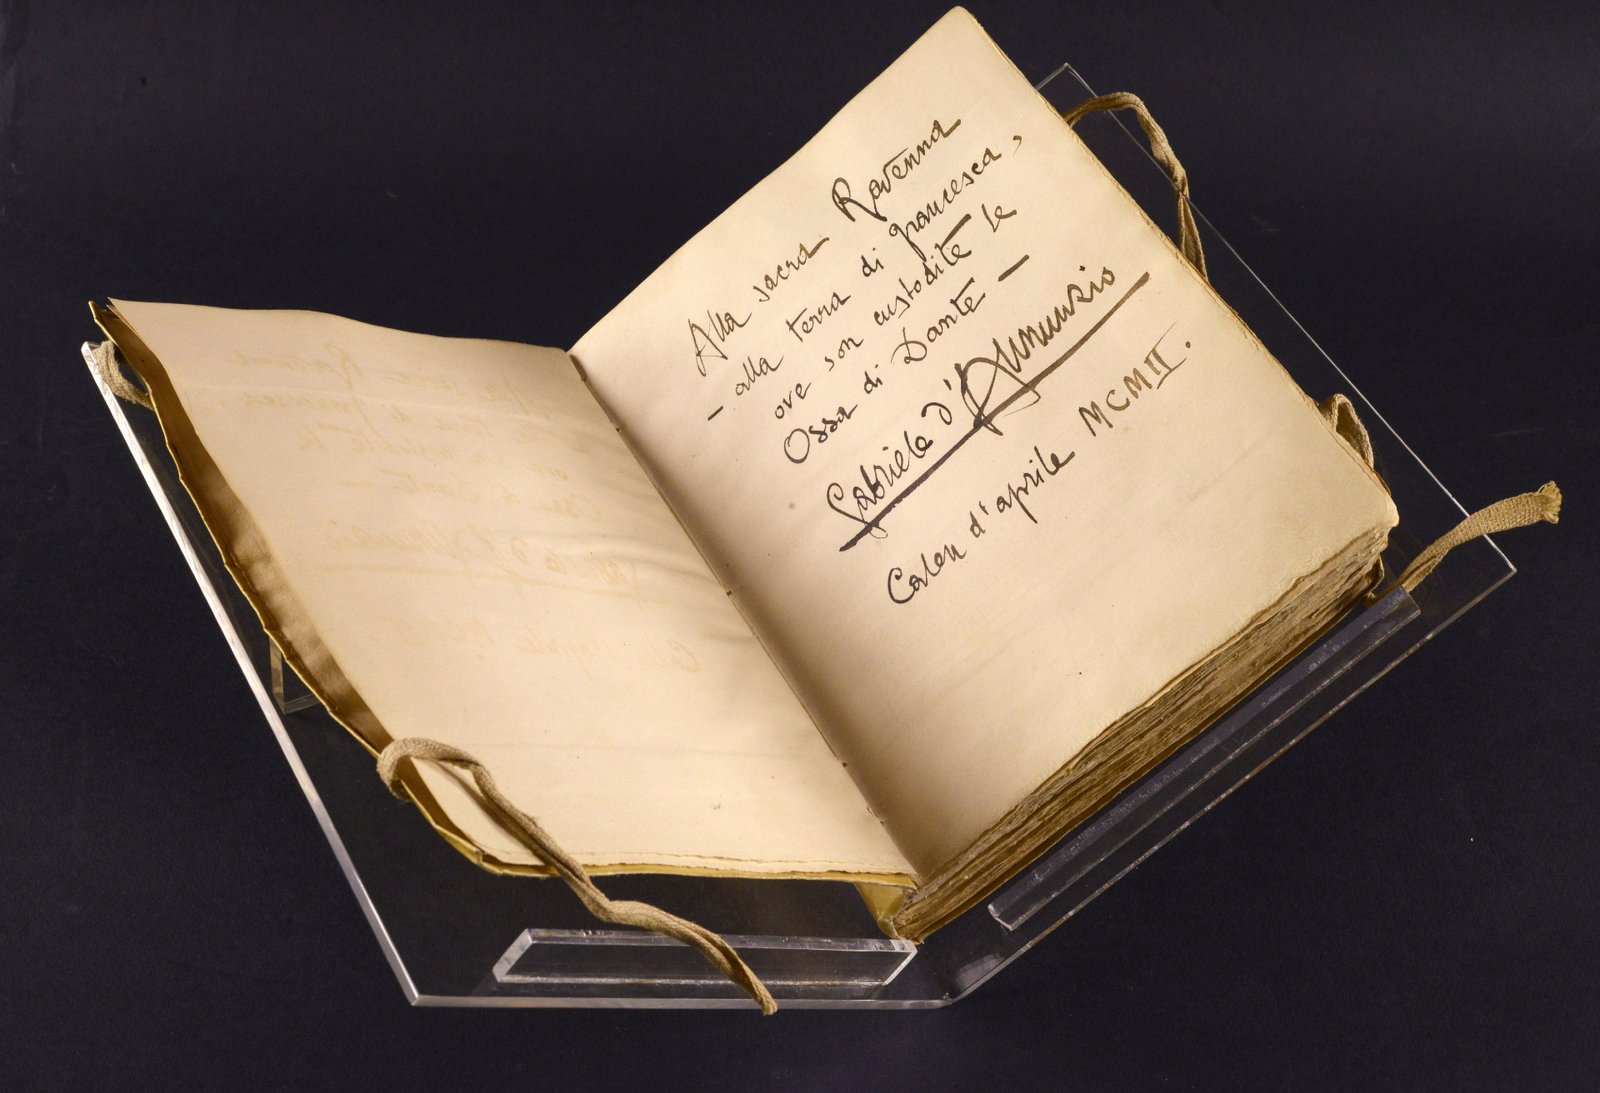 Alla sacra Ravenna
– alla terra di Francesca,
ove son custodite le
Ossa di Dante –
Gabriele d'Annunzio
Calen d'aprile MCMII.